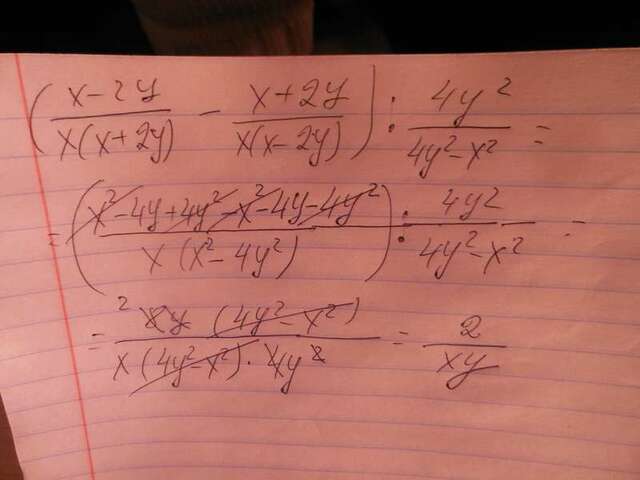 (x-2y/x(x+2y) - x+2y/x(x-2y)) : 4y²/4y²-x² =
= (x²-4y+4y²-x²-4y-4y²/x(x²-4y²)) : 4y²/4y²-x² =
= 2 8y (4y²-x²)/x(4y²-x²)·4y² = 2/xy